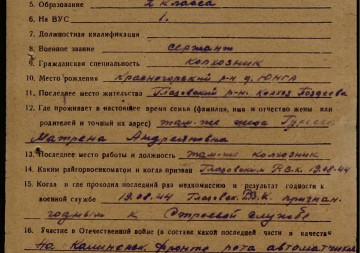 5. Образование 2 класса
6. На ВУС 1.
7. Должностная квалификация
8. Военное звание сержант
9. Гражданская специальность колхозник
10. Место рождения Красногорский р-н д. Юнга
11. Последнее место жительства Глазовский р-н. колхоз
12. Где проживает в настоящее время семья (фамилия, имя и отчество жены или
родителей и точный их адрес) там-же жена
Матрена Андреяновна
13. Последнее место работы и должность там-же колхозник
14. Каким райгорвоенкоматом и когда призван Глазовским Р.В.К. 19.08.44
15. Когда и где проходил последний раз медкомиссию и результат годности к
военной службе 19.08.44 Глазовск. Р.В.К. признан.
годным к Строевой службе
16. Участие в Отечественной войне (в составе какой последней части и качестве
На Калининск. фронте рота автоматчиков